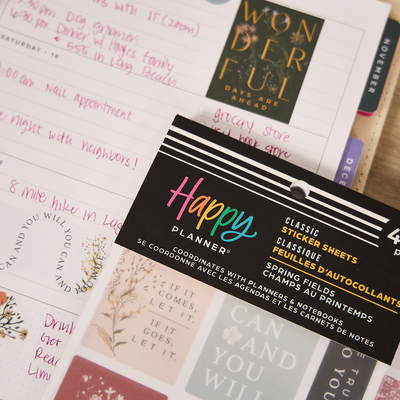 with IT (zoom)
:30 pm Dog groomers
6:30 pm Dinner w/ Hayes family
@ 555 in Long Beach
WONDERFUL
DAYS ARE
AHEAD
NOVEMBER
SATURDAY • 18
:00 am Nail appointment
grocery store
book store
night with neighbors!
DECE
8 mile hike in Las
CAN AND YOU WILL YOU CAN AND YOU WILL
Happy
PLANNER®
CLASSIC
STICKER SHEETS
CLASSIQUE
FEUILLES D'AUTOCOLLANTS
SPRING FIELDS
CHAMPS AU PRINTEMPS
COORDINATES WITH PLANNERS & NOTEBOOKS
SE COORDONNE AVEC LES AGENDAS ET LES CARNETS DE NOTES
4
P
IF IT
COMES,
LET IT.
IF IT
GOES,
LET IT.
CAN
AND
YOU
WILL
Get